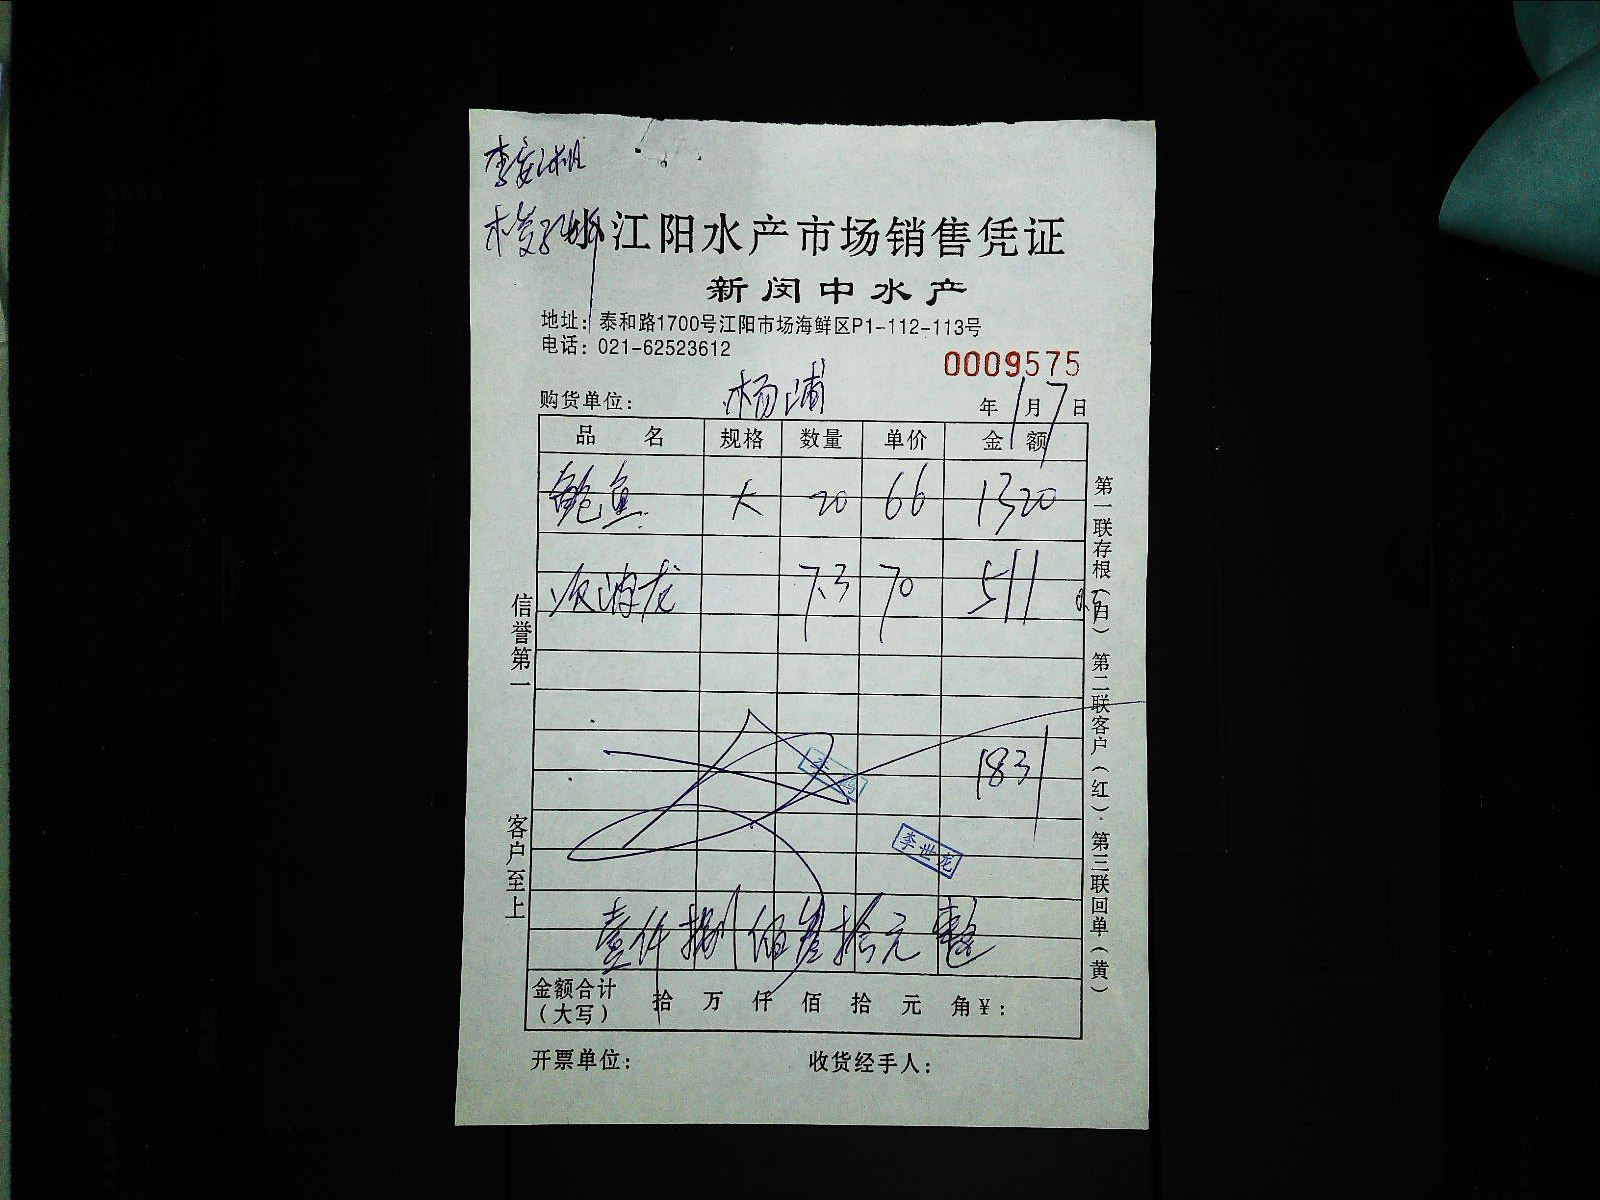 江阳水产市场销售凭证
新闵中水产
地址：泰和路1700号江阳市场海鲜区P1-112-113号
电话：021-62523612
0009575
购货单位： 杨浦 年1月7日
品 名 规格 数量 单价 金 额
鲍鱼 大 20 66 1320
波龙 7.3 70 511
1831
李世龙
壹仟捌佰叁拾元整
金额合计（大写） 拾 万 仟 佰 拾 元 角 ￥：
开票单位： 收货经手人：
信誉第一 客户至上
第一联存根（白） 第二联客户（红）. 第三联回单（黄）